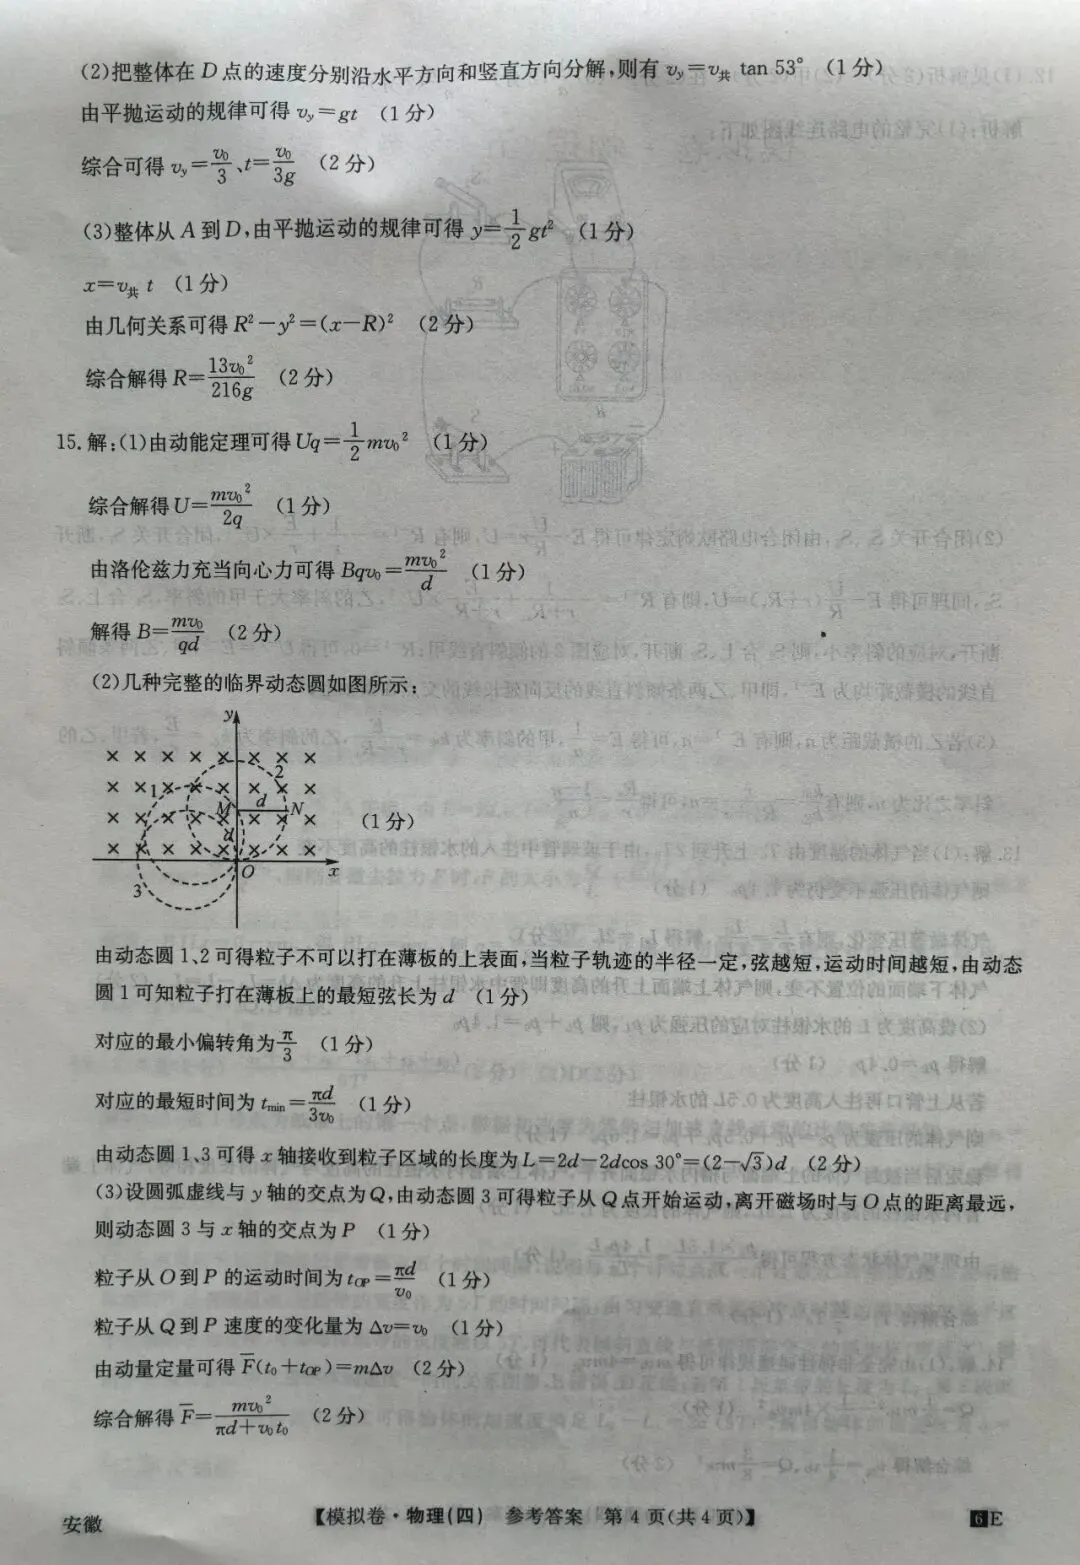 (2)把整体在 D 点的速度分别沿水平方向和竖直方向分解,则有 v_y=v_共 tan 53° (1 分)
由平抛运动的规律可得 v_y=gt (1 分)
综合可得 v_y=v₀/3、t=v₀/3g (2 分)
(3)整体从 A 到 D,由平抛运动的规律可得 y=1/2 gt² (1 分)
x=v_共 t (1 分)
由几何关系可得 R²-y²=(x-R)² (2 分)
综合解得 R=13v₀²/216g (2 分)
15. 解:(1)由动能定理可得 Uq=1/2 mv₀² (1 分)
综合解得 U=mv₀²/2q (1 分)
由洛伦兹力充当向心力可得 Bqv₀=mv₀²/d (1 分)
解得 B=mv₀/qd (2 分)
(2)几种完整的临界动态圆如图所示:
y
× × × × × × × ×
2
× × 1 × × × × × ×
M d N
× × × × × × × (1 分)
d
× × × × × × × ×
O x
3
由动态圆 1、2 可得粒子不可以打在薄板的上表面,当粒子轨迹的半径一定,弦越短,运动时间越短,由动态
圆 1 可知粒子打在薄板上的最短弦长为 d (1 分)
对应的最小偏转角为 π/3 (1 分)
对应的最短时间为 t_min=πd/3v₀ (1 分)
由动态圆 1、3 可得 x 轴接收到粒子区域的长度为 L=2d-2dcos 30°=(2-√3)d (2 分)
(3)设圆弧虚线与 y 轴的交点为 Q,由动态圆 3 可得粒子从 Q 点开始运动,离开磁场时与 O 点的距离最远,
则动态圆 3 与 x 轴的交点为 P (1 分)
粒子从 O 到 P 的运动时间为 t_OP=πd/v₀ (1 分)
粒子从 Q 到 P 速度的变化量为 Δv=v₀ (1 分)
由动量定量可得 F̄(t₀+t_OP)=mΔv (2 分)
综合解得 F̄=mv₀²/(πd+v₀t₀) (2 分)
安徽 【模拟卷·物理(四) 参考答案 第 4 页(共 4 页)】 6 E